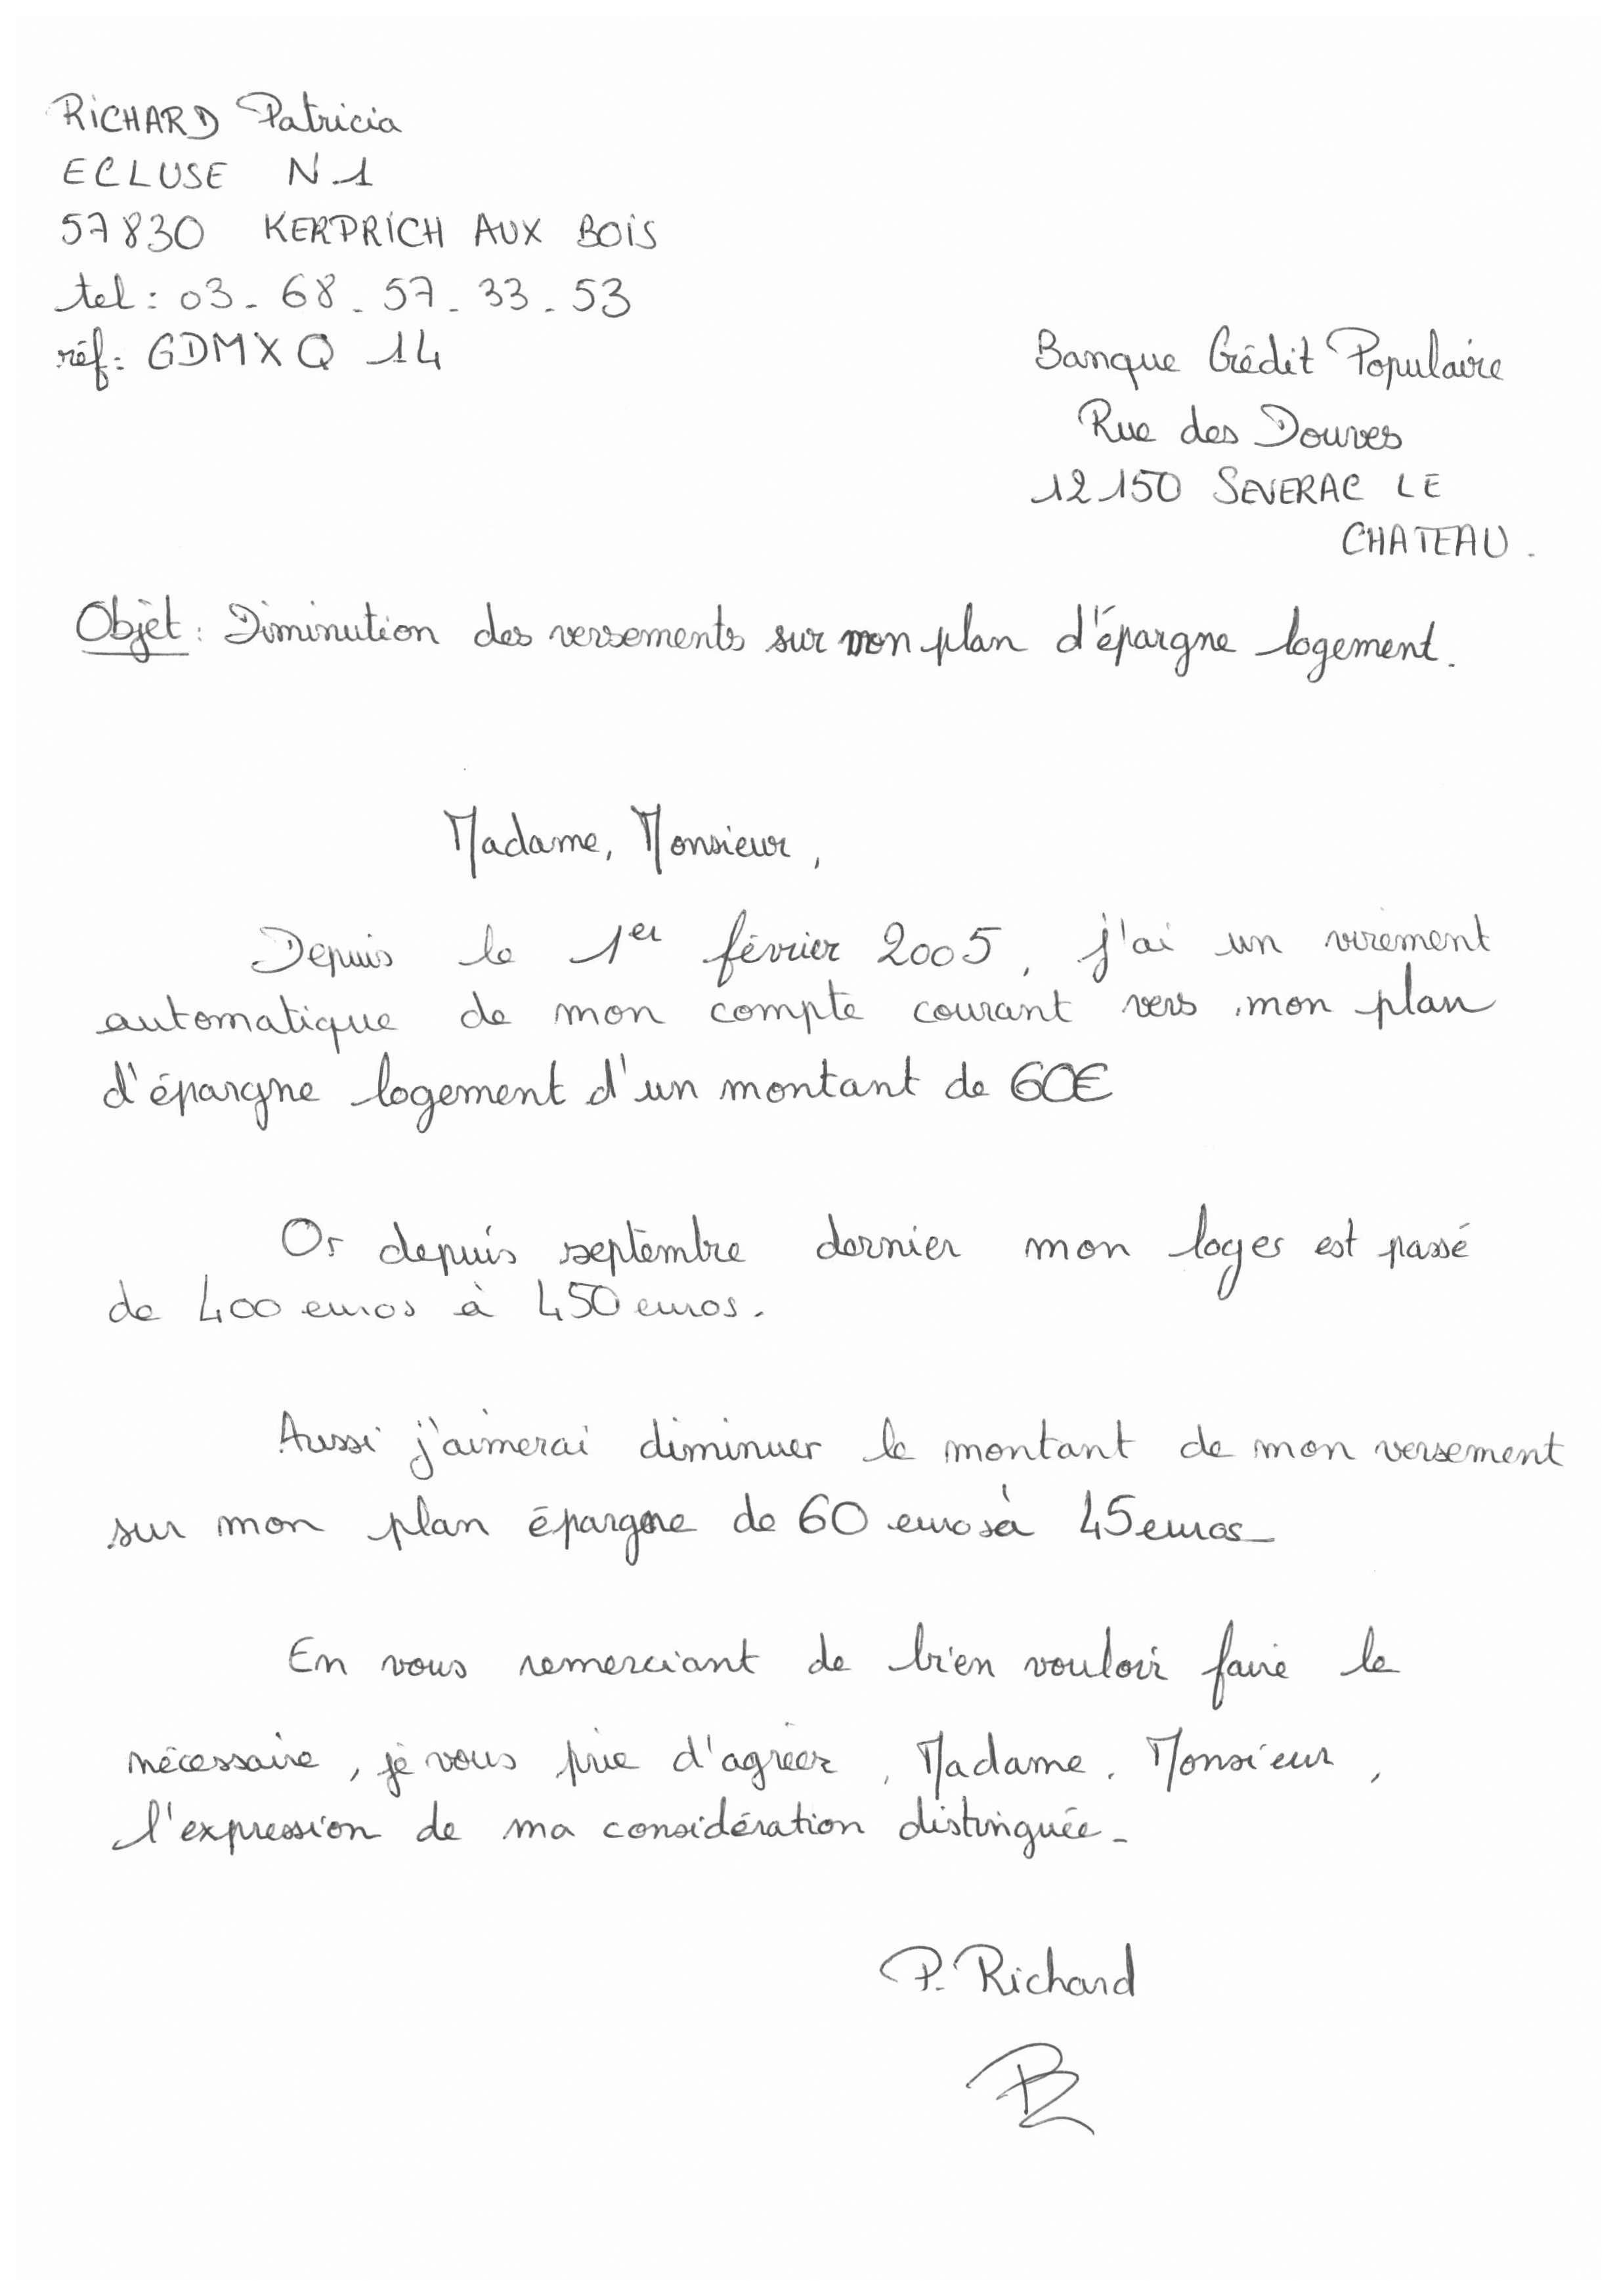 RICHARD Patricia
ECLUSE N 1
57830 KERPRICH AUX BOIS
tel : 03 - 68 - 57 - 33 - 53
réf : GDMXQ 14
Banque Crédit Populaire
Rue des Douves
12150 SEVERAC LE
CHATEAU.
Objet : Diminution des versements sur mon plan d'épargne logement.
Madame, Monsieur,
Depuis le 1er février 2005, j'ai un virement
automatique de mon compte courant vers mon plan
d'épargne logement d'un montant de 60€
Or depuis septembre dernier mon loyer est passé
de 400 euros à 450 euros.
Aussi j'aimerai diminuer le montant de mon versement
sur mon plan épargne de 60 euros à 45 euros_
En vous remerciant de bien vouloir faire le
nécessaire, je vous prie d'agréer, Madame, Monsieur,
l'expression de ma considération distinguée_
P. Richard